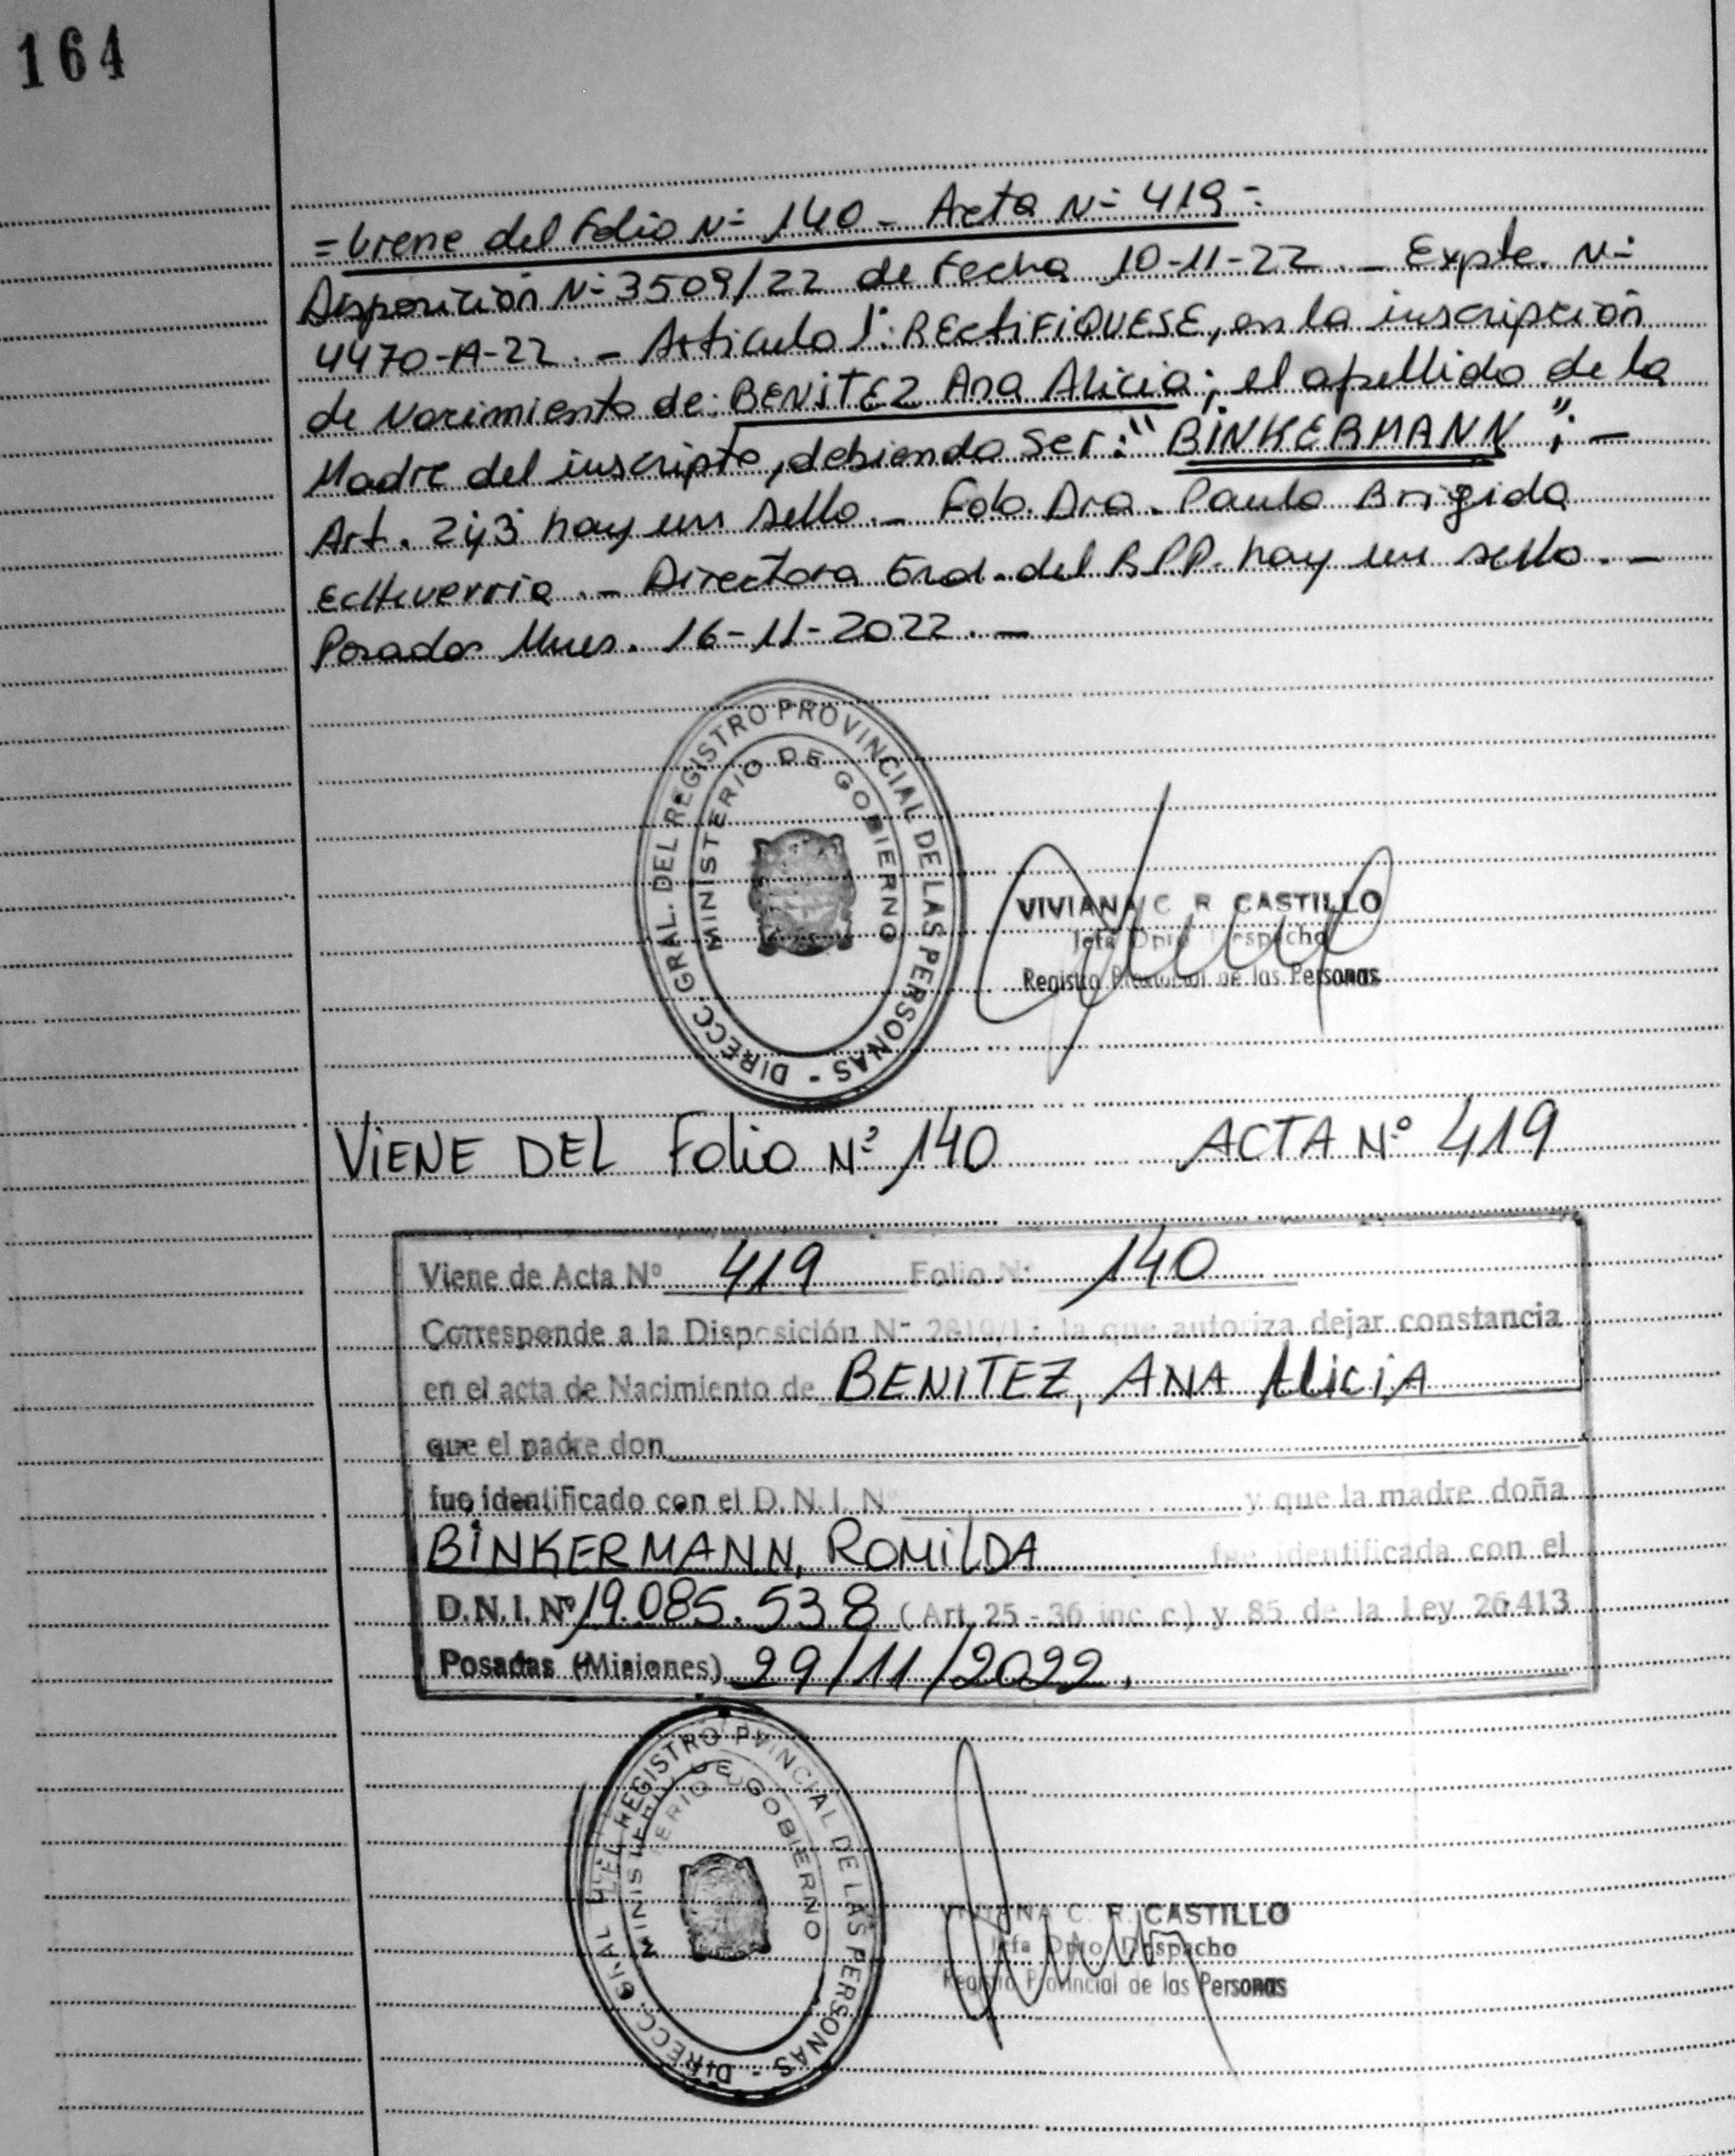 164
= Viene del Folio Nº 140 - Acta Nº 419 =
Disposición Nº 3509/22 de Fecha 10-11-22. - Expte. Nº
4470-A-22. - Articulo 1º: RECTIFIQUESE, en la inscripción
de Nacimiento de: BENITEZ Ana Alicia; el apellido de la
Madre del inscripto, debiendo Ser: "BINKERMANN"; -
Art. 2 y 3 hay un sello. - Fdo. Dra. Paula Brigida
Echeverria. - Directora Gral. del R.P.P. hay un sello. -
Posadas Mnes. 16-11-2022. -
DIRECC. GRAL. DEL REGISTRO PROVINCIAL DE LAS PERSONAS -
MINISTERIO DE GOBIERNO
VIVIANA C. R. CASTILLO
Jefa Dpto Despacho
Registro Provincial de las Personas
VIENE DEL FOLIO Nº 140 ACTA Nº 419
Viene de Acta Nº 419 Folio Nº 140
Corresponde a la Disposición Nº la que autoriza dejar constancia
en el acta de Nacimiento de BENITEZ, ANA ALICIA
que el padre don
fue identificado con el D.N.I. Nº y que la madre doña
BINKERMANN, ROMILDA fue identificada con el
D.N.I. Nº 19.085.538 (Art. 25 - 36 inc. c) y 85 de la Ley 26.413
Posadas (Misiones) 29/11/2022.
DIRECC. GRAL. DEL REGISTRO PVINCIAL DE LAS PERSONAS -
MINISTERIO DE GOBIERNO
VIVIANA C. R. CASTILLO
Jefa Dpto Despacho
Registro Provincial de las Personas